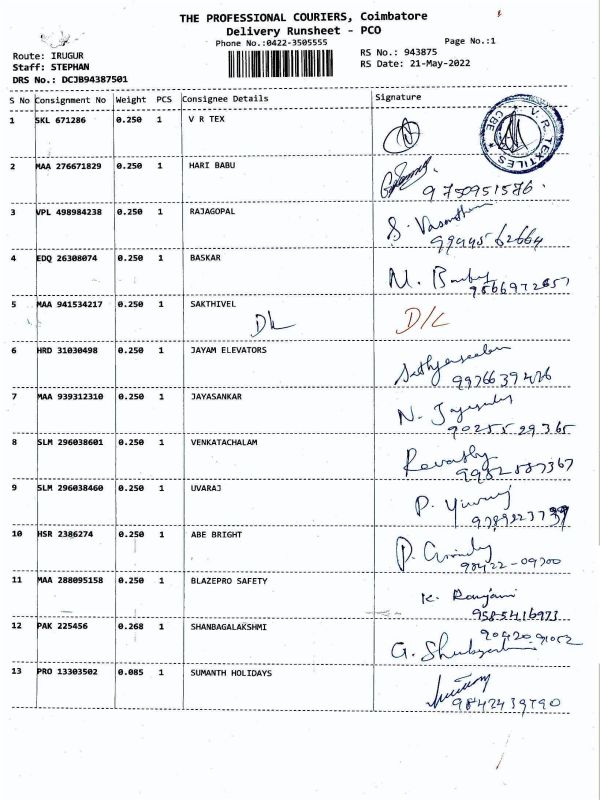 THE PROFESSIONAL COURIERS, Coimbatore
Delivery Runsheet - PCO
Phone No.:0422-3505555
Page No.:1
Route: IRUGUR
Staff: STEPHAN
DRS No.: DCJB94387501
RS No.: 943875
RS Date: 21-May-2022
S No Consignment No Weight PCS Consignee Details Signature
1 SKL 671286 0.250 1 V R TEX
V. R. TEXTILES CBE
2 MAA 276671829 0.250 1 HARI BABU
9750951586.
3 VPL 498984238 0.250 1 RAJAGOPAL S. Vasantham
9944562664
4 EDQ 26308074 0.250 1 BASKAR M.
5 MAA 941534217 0.250 1 SAKTHIVEL
DL D/L
6 HRD 31030498 0.250 1 JAYAM ELEVATORS
7 MAA 939312310 0.250 1 JAYASANKAR N.
9025529365
8 SLM 296038601 0.250 1 VENKATACHALAM Revathy
9 SLM 296038460 0.250 1 UVARAJ P. Yuvaraj
10 HSR 2386274 0.250 1 ABE BRIGHT P.
98422-09700
11 MAA 288095158 0.250 1 BLAZEPRO SAFETY K. Ranjani
9585416973
12 PAK 225456 0.268 1 SHANBAGALAKSHMI
G.
13 PRO 13303502 0.085 1 SUMANTH HOLIDAYS
9842439790